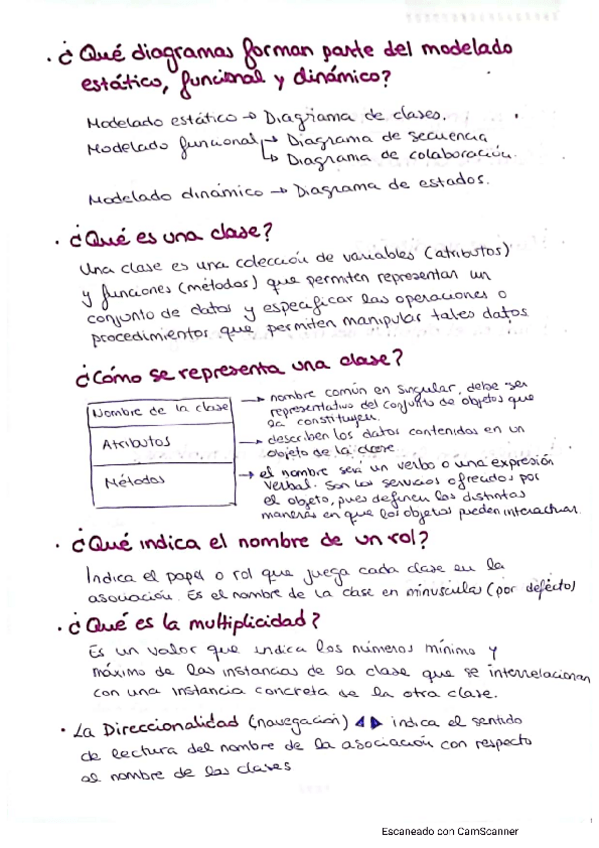 · ¿Qué diagramas forman parte del modelado
estático, funcional y dinámico?
Modelado estático → Diagrama de clases.
Modelado funcional → Diagrama de secuencia
↳ Diagrama de colaboración.
Modelado dinámico → Diagrama de estados.
· ¿Qué es una clase?
Una clase es una colección de variables (atributos)
y funciones (métodos) que permiten representar un
conjunto de datos y especificar las operaciones o
procedimientos que permiten manipular tales datos
¿Cómo se representa una clase?
Nombre de la clase → nombre común en singular, debe ser
representativo del conjunto de objetos que
la constituyen.
Atributos → describen los datos contenidos en un
objeto de la clase
Métodos → el nombre será un verbo o una expresión
verbal. Son los servicios ofrecidos por
el objeto, pues definen las distintas
maneras en que los objetos pueden interactuar.
· ¿Qué indica el nombre de un rol?
Indica el papel o rol que juega cada clase en la
asociación. Es el nombre de la clase en minúsculas (por defecto)
· ¿Qué es la multiplicidad?
Es un valor que indica los números mínimo y
máximo de las instancias de la clase que se interrelacionan
con una instancia concreta de la otra clase.
· La Direccionalidad (navegación) ◀ ▶ indica el sentido
de lectura del nombre de la asociación con respecto
al nombre de las clases
Escaneado con CamScanner